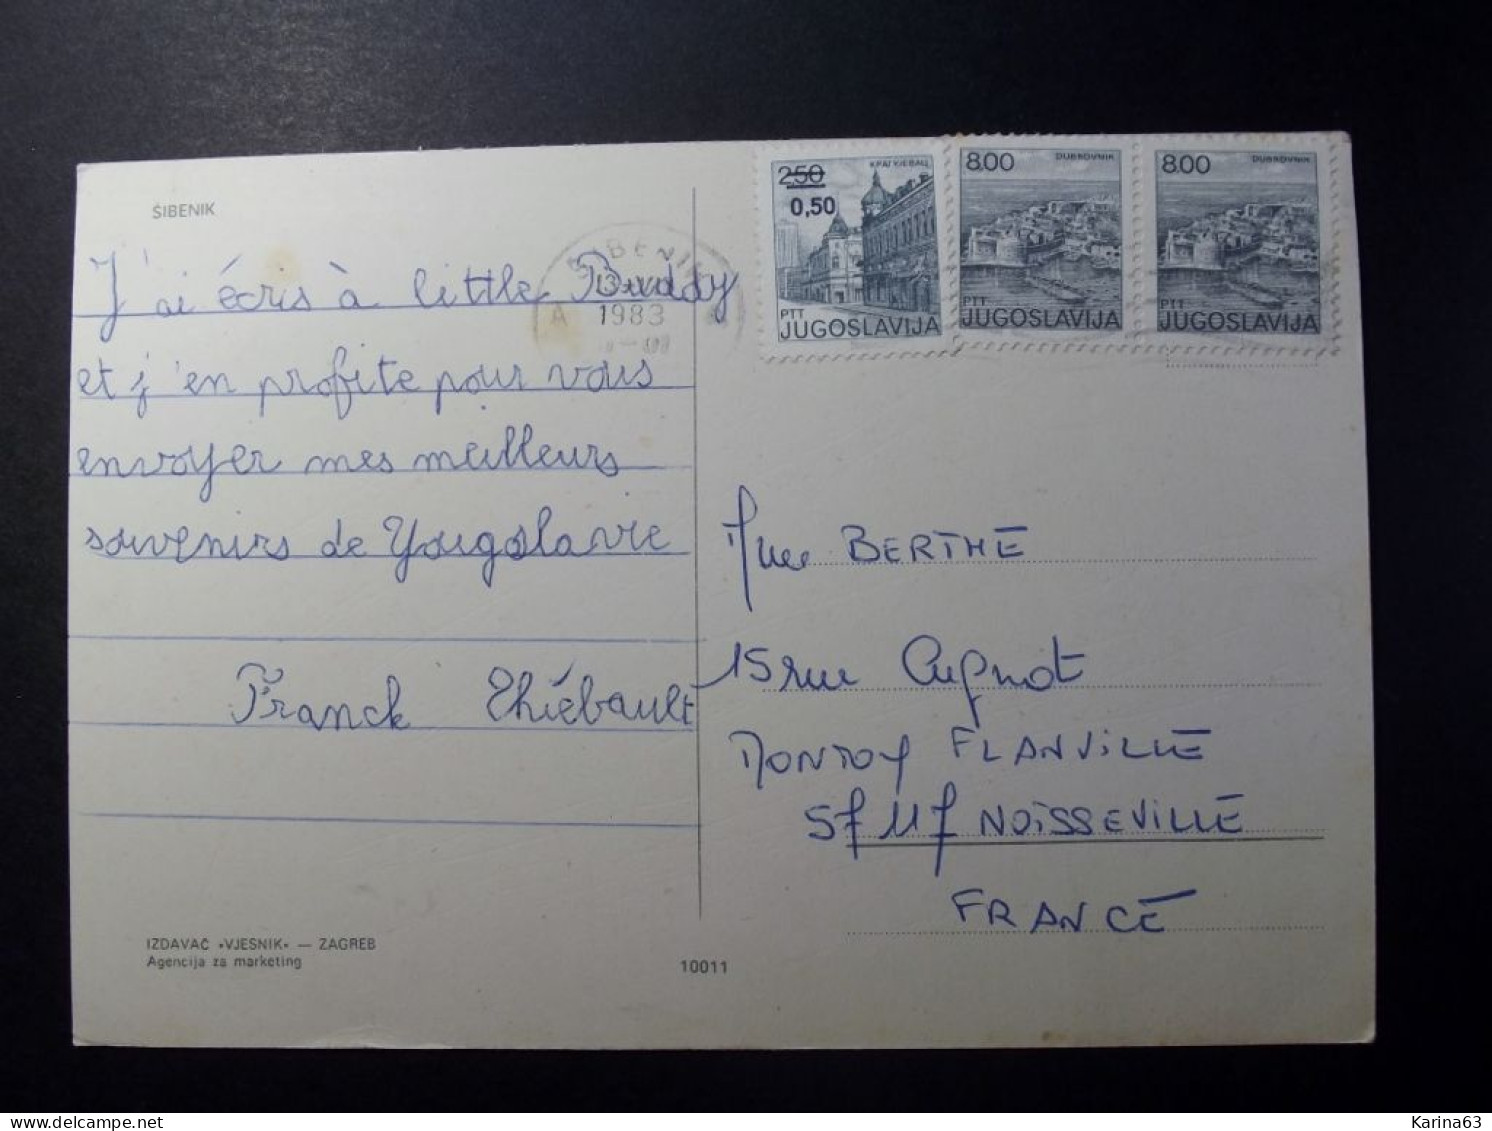 ŠIBENIK
J'ai écris à little Buddy
et j'en profite pour vous
envoyer mes meilleurs
souvenirs de Yougoslavie
Franck Thiébault
IZDAVAČ •VJESNIK• — ZAGREB
Agencija za marketing
10011
ŠIBENIK
1983
A
250
0,50
КРАГУЈЕВАЦ
PTT
JUGOSLAVIJA
8.00
DUBROVNIK
PTT
JUGOSLAVIJA
8.00
DUBROVNIK
PTT
JUGOSLAVIJA
BERTHE
15 rue Cugnot
MONTOY FLANVILLE
NOISSEVILLE
FRANCE
delcampe.net
Karina63